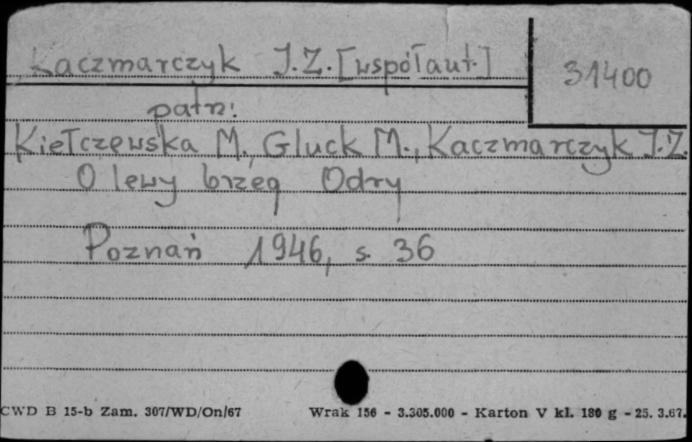 Kaczmarczyk J.Z. [współaut.]
31400
patrz:
Kiełczewska M., Gluck M., Kaczmarczyk J.Z.
O lewy brzeg Odry
Poznań 1946, s. 36
CWD B 15-b Zam. 307/WD/On/67 Wrak 156 - 3.305.000 - Karton V kl. 180 g - 25. 3.67.